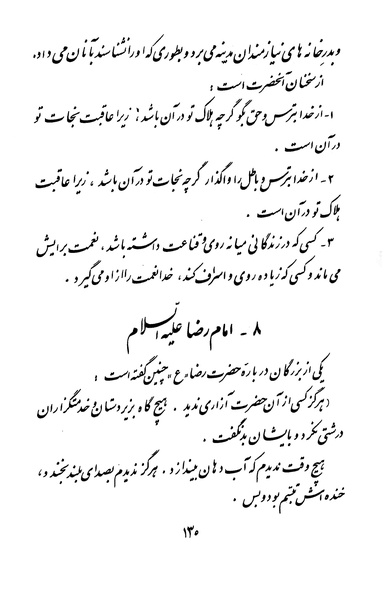 و بدر خانه های نیازمندان مدینه می برد و بطوری که او را نشناسند بآنان می داد.
از سخنان آنحضرت است :
۱- از خدا بترس و حق گو گرچه هلاک تو در آن باشد، زیرا عاقبت نجات تو
در آن است .
۲- از خدا بترس و باطل را واگذار گرچه نجات تو در آن باشد ، زیرا عاقبت
هلاک تو در آن است .
۳- کسی که در زندگانی میانه روی و قناعت داشته باشد ، نعمت برایش
می ماند و کسی که زیاده روی و اسراف کند، خدا نعمت را از او می گیرد .
۸ - امام رضا علیه السلام
یکی از بزرگان درباره حضرت رضا «ع» چنین گفته است :
(هرگز کسی از آن حضرت آزاری ندید . هیچ گاه بزیردستان و خدمتگزاران
درشتی نکرد و بایشان بد نگفت .
هیچ وقت ندیدم که آب دهان بیندازد . هرگز ندیدم بصدای بلند بخندد ،
خنده اش تبسم بود و بس .
۱۳۵